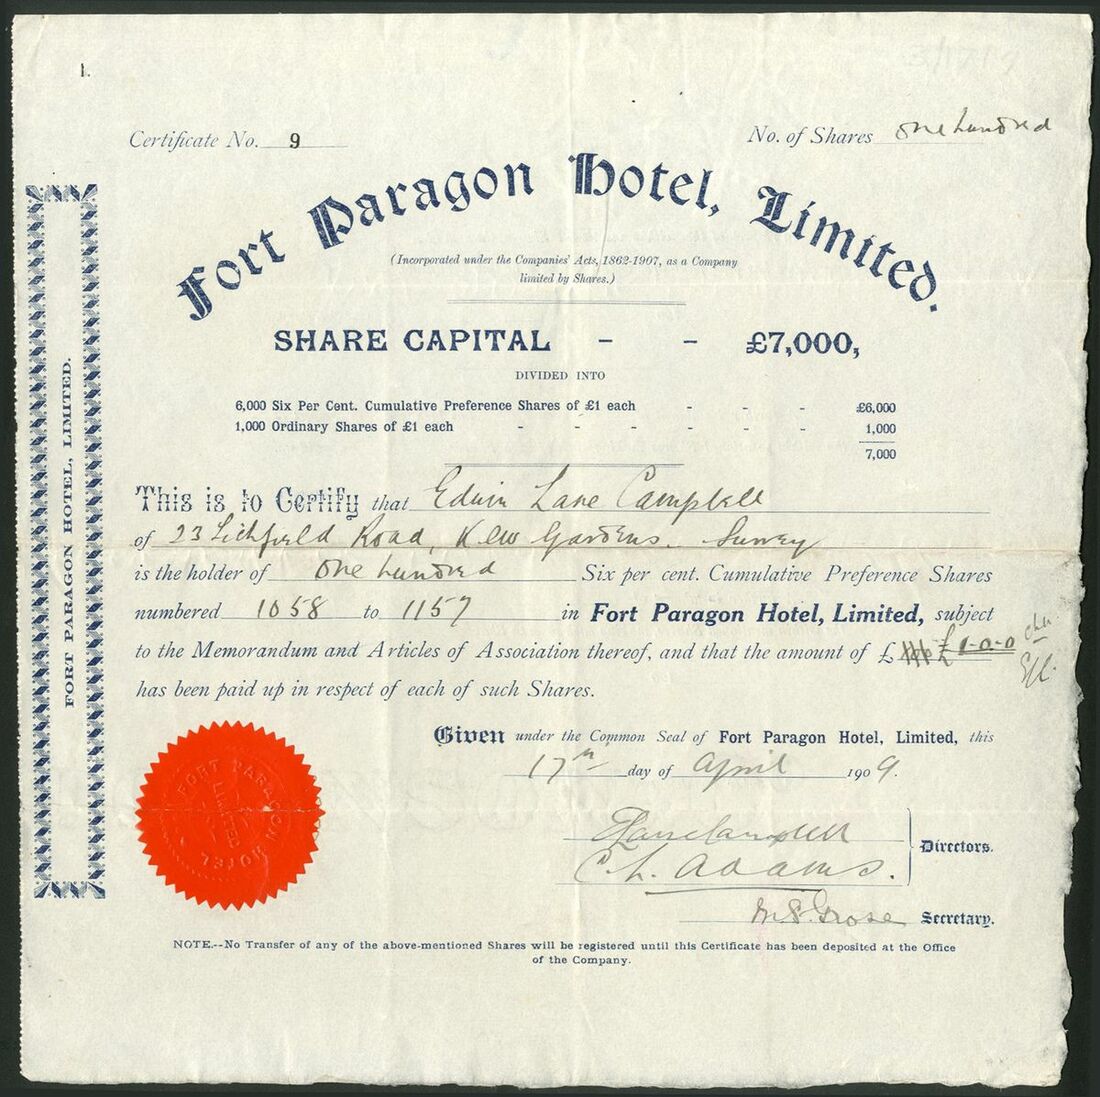 1.
Certificate No. 9
No. of Shares one hundred
Fort Paragon Hotel, Limited.
(Incorporated under the Companies' Acts, 1862-1907, as a Company
limited by Shares.)
SHARE CAPITAL - - £7,000,
DIVIDED INTO
6,000 Six Per Cent. Cumulative Preference Shares of £1 each - - - £6,000
1,000 Ordinary Shares of £1 each - - - - - - 1,000
7,000
This is to Certify that Edwin Lane Campbell
of 23 Lichfield Road, Kew Gardens. Surrey
is the holder of one hundred Six per cent. Cumulative Preference Shares
numbered 1058 to 1157 in Fort Paragon Hotel, Limited, subject
to the Memorandum and Articles of Association thereof, and that the amount of £ £1-0-0
has been paid up in respect of each of such Shares.
Given under the Common Seal of Fort Paragon Hotel, Limited, this
17th day of April 1909.
E Lane Campbell
C. L. Adams.
Directors.
M. S. Grose Secretary.
NOTE.--No Transfer of any of the above-mentioned Shares will be registered until this Certificate has been deposited at the Office
of the Company.
FORT PARAGON HOTEL, LIMITED.
FORT PARAGON HOTEL
LIMITED